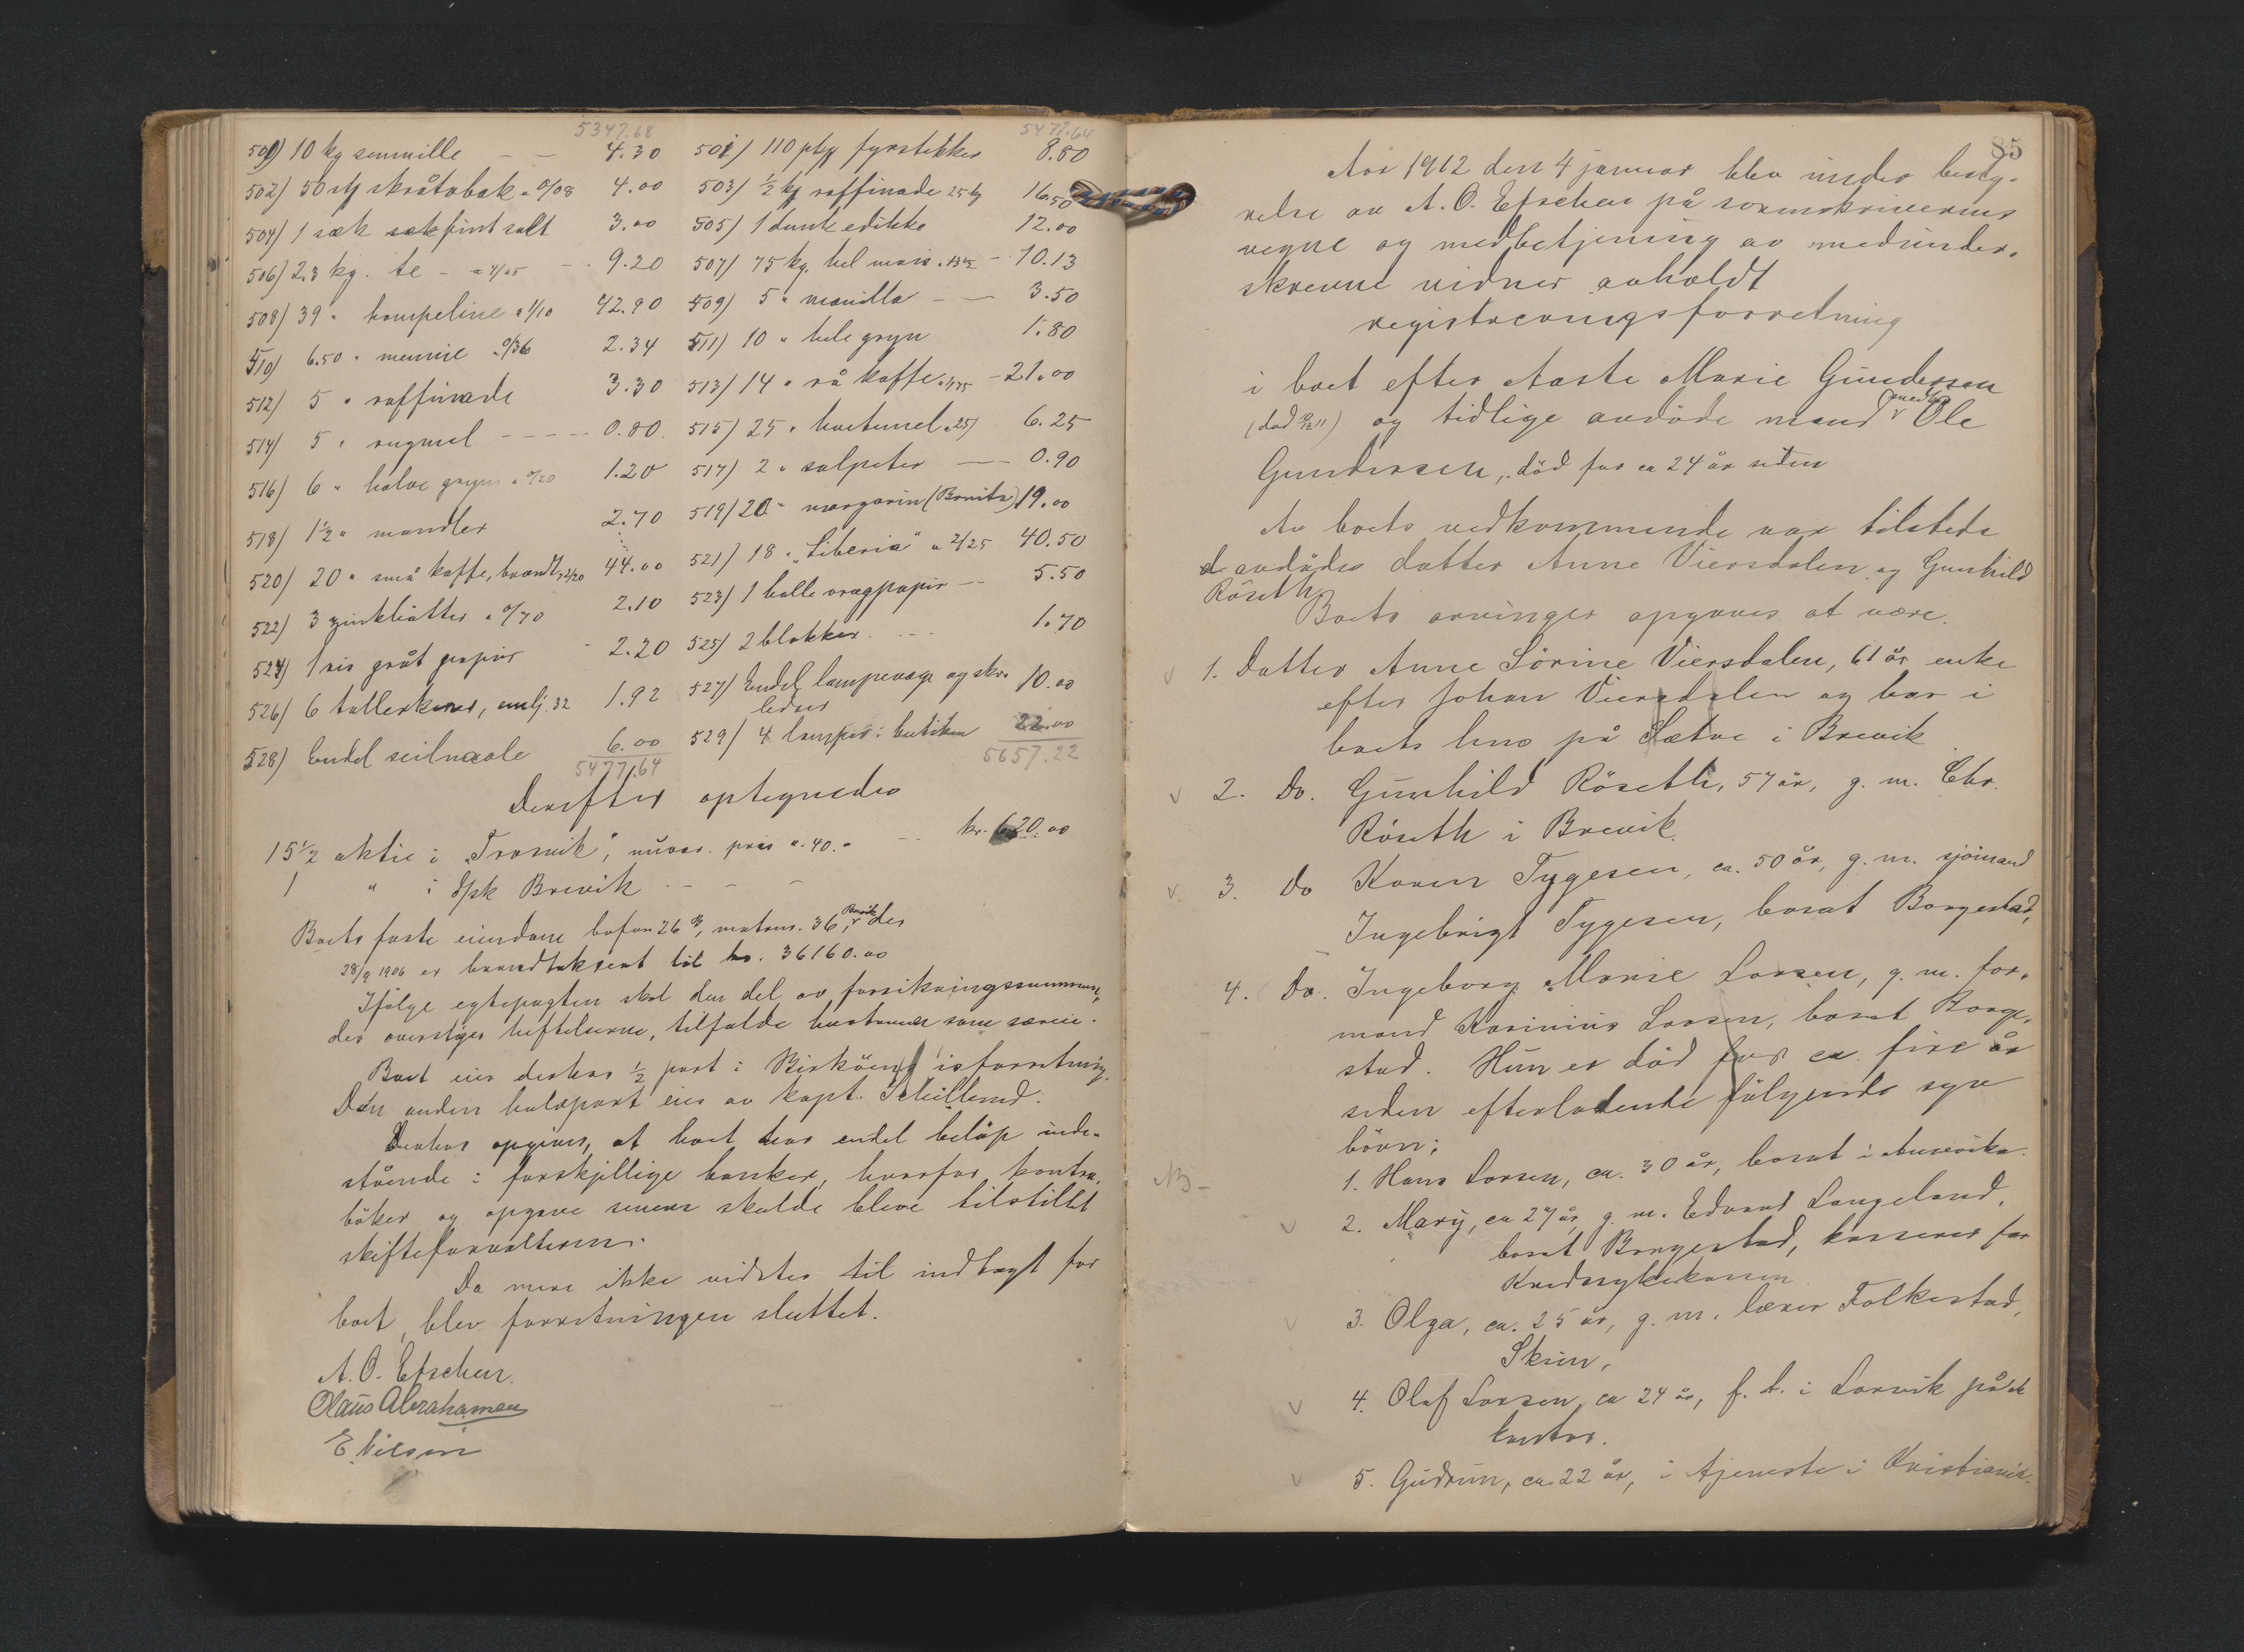 5347.68 5472.64
500) 10 kg semmille — — 4.30 501) 110 pkg fyrstikker 8.80
502) 50 stg skråtobak a 0/08 4.00 503) ½ kg raffinade 25 kg 16.50
504) 1 sæk fint salt 3.00 505) 1 dunk edikke 12.00
506) 2.3 kg. te - a 4/00 - 9.20 507) 75 kg. hel mais a 13½ - 10.13
508) 39 " hampeline a 1/10 42.90 509) 5 " manilla — — 3.50
510) 6.50 " mønnie a 0/36 2.34 511) 10 " hele gryn 1.80
512) 5 " raffinade 3.30 513) 14 " rå kaffe - 21.00
514) 5 " rugmel - - - - 0.80 515) 25 " hvetemel a 25) 6.25
516) 6 " halve gryn a 0/20 1.20 517) 2 " salpeter — 0.90
518) 1½ " mandler 2.70 519) 20 " margarin 19.00
520) 20 " små kaffe, brændt, a 2/20 44.00 521) 18 " "Liberia" a 2/25 40.50
522) 3 zinkbøtter a 0/70 2.10 523) 1 balle vragpapir — 5.50
524) 1 ris gråt papir - 2.20 525) 2 blokker - - 1.70
526) 6 tallerkener, emlj. 32 1.92 527) Endel lampevæge og sko-
lidser 10.00
528) Endel seilnaale 6.00 529) 4 lamper i butiken 22.00
5477.64 5657.22
Derefter optegnedes
15½ aktie i "Trosvik", nuvær. pris a. 40.- - kr. 620.00
1 " i d/sk Brevik - - -
Boets faste eiendom bofon 26 B, matr. nr. 36, Brevik der
28/9 1906 er brandtaksert til kr. 36160.00
Ifølge egtepagten skal den del av forsikringssummen,
der overstiger heftelserne, tilfalde hustruen som særeie.
Boet eier derhos ½ part i isforretning.
Den anden halvpart eies av kapt.
Derhos opgives, at boet har endel beløp inde-
stående i forskjellige banker, hvorfor kontra-
bøker og opgave senere skulde bleve tilstillet
skifteforvalteren.
Da mere ikke vidstes til indtægt for
boet, blev forretningen sluttet.
A. O. Efschen.
Olaus Abrahamsen
E. Nilsen
85
Aar 1912 den 4 januar blev under besty-
relse av A. O. Efschen på sorenskriverens
vegne og medbetjening av medunder-
skrevne vidner avholdt
registreringsforretning
i boet efter Aaste Marie Gundersen
(död 12/11) og tidlige avdöde mand Ole
Gundersen, död for ca 24 år siden
Av boets vedkommende var tilstede
avdødes datter Anne Viersdalen og Gunhild
Röseth
Boets arvinger opgaves at være.
1. Datter Anne Sörine Viersdalen, 61 år enke
efter Johan Viersdalen og bor i
boets hus på Sætre i Brevik
2. Do. Gunhild Röseth, 57 år, g. m. Chr.
Röseth i Brevik.
3. Do Karen Tygesen, ca. 50 år, g. m. sjömand
Ingebrigt Tygesen, bosat Borgestad,
4. Do. Ingeborg Marie Larsen, g. m. for-
mand Karinius Larsen, bosat Borge-
stad. Hun er död for ca fire år
siden efterladende fölgende syv
börn:
NB- 1. Hans Larsen, ca. 30 år, bosat i Amerika.
2. Mary, ca 27 år, g. m. Edvard Langeland,
bosat Borgestad, kasserer for
Kredssykekassen
3. Olga, ca. 25 år, g. m. lærer Folkestad,
Skien,
4. Olaf Larsen, ca 24 år, f. t. i Larvik på et
kontor.
5. Gudrun, ca. 22 år, i tjeneste i Kristiania.